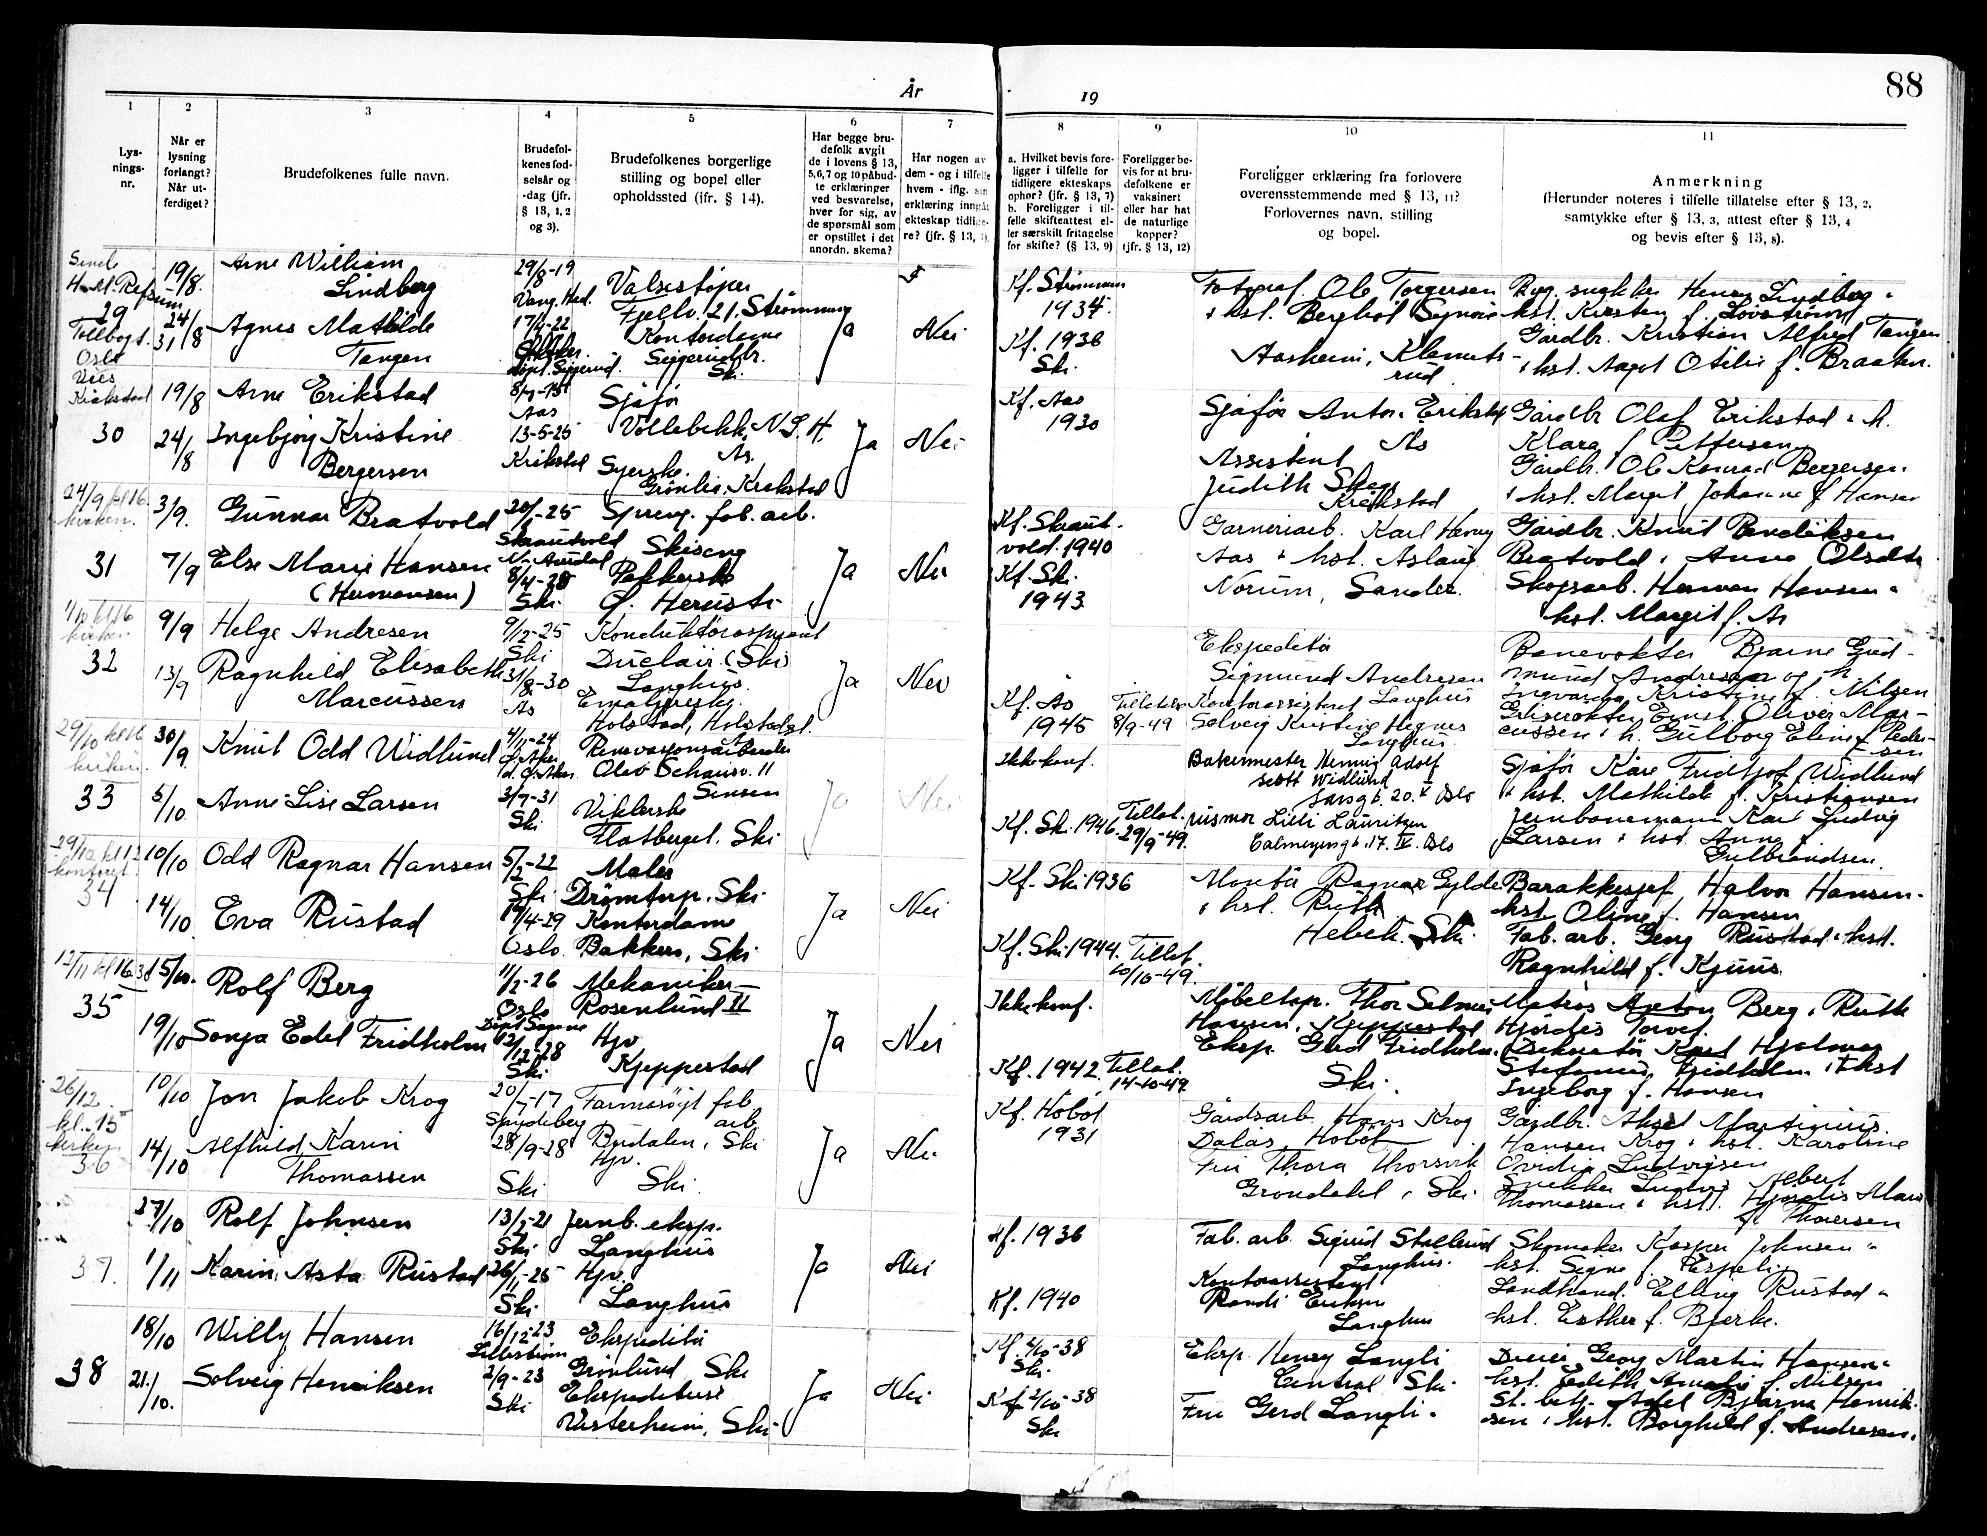 88
År
19
1
2
3
4
5
6
7
8
9
10
11
Lys-
nings-
nr.
Når er
lysning
forlangt?
Når ut-
ferdiget?
Brudefolkenes fulle navn.
Brudefol-
kenes fød-
selsår og
-dag (jfr.
§ 13, 1, 2
og 3).
Brudefolkenes borgerlige
stilling og bopel eller
opholdssted (jfr. § 14).
Har begge bru-
defolk avgit
de i lovens § 13,
5,6,7 og 10 påbud-
te erklæringer
ved besvarelse,
hver for sig, av
de spørsmål som
er opstillet i det
anordn. skema?
Har nogen av
dem - og i tilfelle
hvem - iflg. sin
erklæring inngått
ekteskap tidlige-
re? (jfr. § 13, 7).
a. Hvilket bevis fore-
ligger i tilfelle for
tidligere ekteskaps
ophør? (jfr. § 13, 7)
b. Foreligger i til-
felle skifteattest el-
ler særskilt fritagelse
for skifte? (§ 13, 9)
Foreligger be-
vis for at bru-
defolkene er
vaksinert
eller har hat
de naturlige
kopper?
(jfr. § 13, 12)
Foreligger erklæring fra forlovere
overensstemmende med § 13, 11?
Forlovernes navn, stilling
og bopel.
Anmerkning
(Herunder noteres i tilfelle tillatelse efter § 13, 2,
samtykke efter § 13, 3, attest efter § 13, 4
og bevis efter § 13, 8).
29
19/8.
24/8
31/8
Arne William
Lindberg
Agnes Mathilde
Tangen
29/8-19
Vang, Hed.
17/4-22
Valsestøper
Fjellv. 21. Strømmen
Kontordame
Siggerud br.
Ski.
Ja
Nei
Kf. Strømmen
1934.
Kf. 1936
Ski.
Fotograf Ole Torgersen
Aasheim, Klemets-
rud
Henry Lindberg
hst. Kirsten f.
Gårdbr. Kristian Alfred Tangen
hst. Aagot Otilie f. Braaten.
30
19/8
24/8
Arne Erikstad
Ingebjørg Kristine
Bergersen
Aas
13-5-25
Kråkstad
Sjåfør
Vollebekk, N.L.H.
Ås.
Syerske.
Grønlia, Kråkstad
Ja
Nei
Kf. Aas
1930
Sjåfør Anton Erikstad
Ås
Assistent
Judith
Kråkstad
Gårdbr Olaf Erikstad
Klara f. Pettersen
Gårdbr. Ole Konrad Bergersen
hst. Margit Johanne f. Hansen
24/9 kl 16.
kirken.
31
3/9.
7/9
Gunnar Bratvold
Else Marie Hansen
(Hermansen)
20/1-25
8/4-28
Ski.
Spreng. fab. arb.
Skiseng
Pakkerske
Ja
Nei
Kf. Skaut-
vold. 1940
Kf. Ski.
1943
Garneriarb. Karl Henry
Aas hst. Aslaug
Norum, Sander.
Gårdbr. Knut Bendiksen
Bratvold Anne Olsdtr
Skogsarb. Herman Hansen
hst. Margit f. As
1/10 kl 16
kirken
32
9/9
13/9
Helge Andresen
Ragnhild Elisabeth
Marcussen
9/12-25
Ski
31/8-30
As
Konduktøraspirant
Duclair (Ski)
Langhus.
Holstad, Holstadgt.
Ja
Nei
Kf. As
1945
8/9-49
Ekspeditør
Sigmund Andresen
Kontorassistent Langhus
Solveig Kristine
Langhus.
Banevokter Bjarne Gud-
mund Andresen og h
Ingvarda Kristine f. Nilsen
Ernst Oliver Mar-
cussen h. Gulborg Eline f. Peder-
sen
29/10 kl 16
kirken.
33
30/9
5/10
Knut Odd Widlund
Anne-Lise Larsen
4/11-24
3/7-31
Ski
Renovasjonsarbeider
Olav Schousv. 11
Sinsen
Viklerske
Flatberget. Ski
Ja
Nei
Ikke konf.
Kf. Ski. 1946
Tillat.
29/9-49.
Bakermester Henning Adolf
Widlund
Oslo
Lilli Lauritzen
Calmeyersgt. 17. IV. Oslo
Sjåfør Kåre Fridtjof Widlund
hst. Mathilde f. Kristiansen
Jernbanemann Karl Ludvig
Larsen hst. Anna f.
Gulbrandsen.
29/10 kl 12
kontoret.
34
10/10
14/10
Odd Ragnar Hansen
Eva Rustad
5/2-22
Ski
19/4-29
Oslo
Maler
Drømtorp. Ski
Kontordame
Bakken, Ski
Ja
Nei
Kf. Ski 1936
Kf. Ski. 1944.
Tillat.
10/10-49.
Montør Ragnar Gylder
hst. Ruth
Hebek. Ski.
Barakkesjef, Halvor Hansen
hst. Oline f. Hansen
Fab. arb. Georg Rustad hst.
Ragnhild f. Kjuus
12/11 kl 16.30
35
15/10.
19/10
Rolf Berg
Sonja Edel Fridholm
11/2-26
Oslo
12/12-28
Ski
Mekaniker
Rosenlund II
Hjv
Kjeppestad
Ja
Nei
Ikke konf.
Kf. 1942.
Tillat.
14-10-49.
Møbeltap. Thor Selmer
Hansen, Kjeppestad
Eksp. Gerd Fridholm
Ski.
Matias Anton Berg Ruth
Hjørdis
Dekoratør Karl Hjalmar
Fridholm hst
Ingeborg f. Hansen
26/12.
kl. 15
kirken
36
10/10
14/10
Jon Jakob Krog
Alfhild Karin
Thomassen
20/7-17
Spydeberg
28/9-28
Ski
Farmasøyt fab.
arb.
Bjudalen, Ski
Hjv.
Ski.
Ja
Nei
Kf. Hobøl
1931
Gårdsarb. Hans Krog
Dalås, Hobøl
Fru Thora Thorsvik
Grøndahl, Ski.
Gårdbr. Aksel Martinius
Hansen Krog hst. Karoline
Ovidia Ludvigsen
Snekker Ludvig Albert
Thomassen hst. Hjørdis Marie
f. Thoresen
37.
27/10
1/11
Rolf Johnsen
Karin Asta Rustad
13/2-21
Ski
26/1-25
Ski
Jernb. eksp.
Langhus
Hjv.
Langhus
Ja
Nei
Kf. 1936
Kf. 1940
Fab. arb. Sigurd Stallerud
Langhus.
Kontorassistent
Randi Eriksen
Langhus
Skomaker Kasper Johnsen
hst. Signe f. Espelie
Landhand. Elling Rustad
hst. Esther f. Bjerke.
38
18/10
21/10.
Willy Hansen
Solveig Henriksen
16/12-23
Lillestrøm
2/9-23
Ski
Ekspeditør
Grønlund Ski
Ekspeditrise
Vesterheim, Ski
Ja
Nei
Kf. 2/10-38
Ski.
Kf 2/10-38
Ski
Eksp. Henry Langli
Central Ski
Fru Gerd Langli.
Dreier Georg Martin Hansen
hst. Edith Amalie f. Nilsen
St. betj. Adel Bjarne Henrik-
sen hst. Borghild f. Andresen.